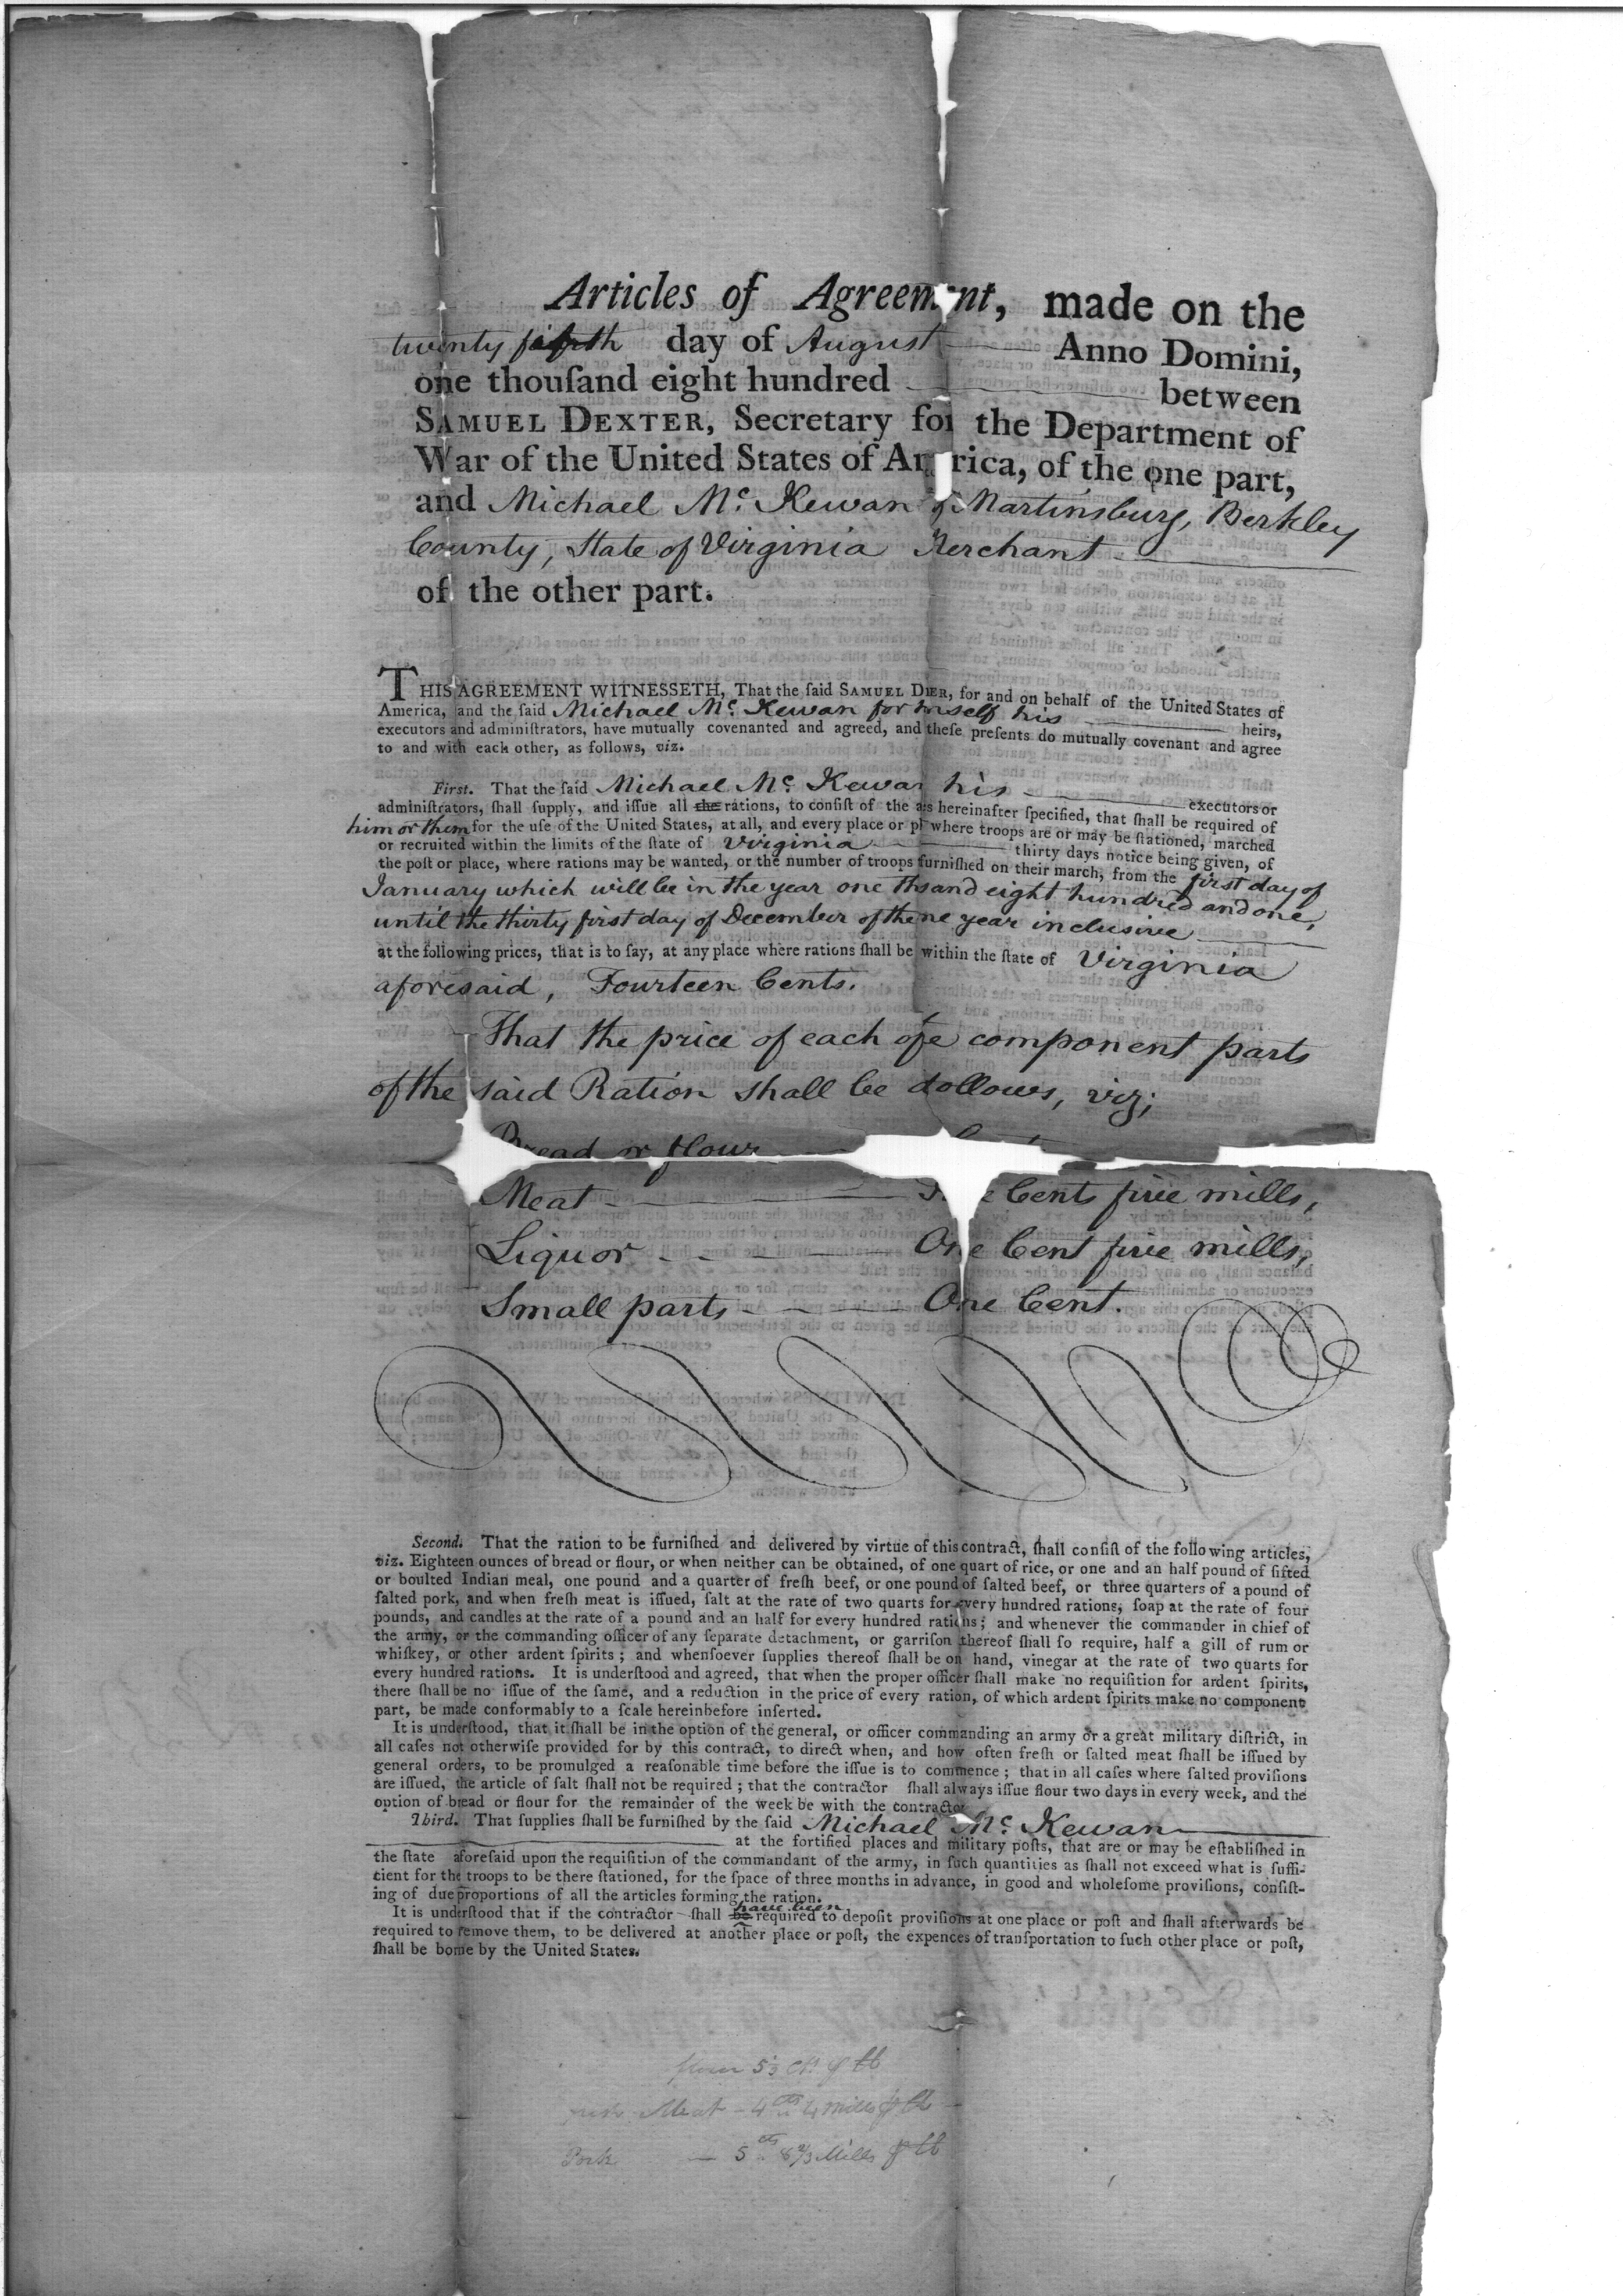 Articles of Agreem nt, made on the
twenty fifth day of August Anno Domini,
one thouſand eight hundred between
SAMUEL DEXTER, Secretary for the Department of
War of the United States of Am rica, of the one part,
and Michael Mc. Kewan of Martinsburg, Berkley
County, State of Virginia Merchant
of the other part.
THIS AGREEMENT WITNESSETH, That the ſaid SAMUEL D ER, for and on behalf of the United States of
America, and the ſaid Michael Mc. Kewan for h mself his heirs,
executors and adminiſtrators, have mutually covenanted and agreed, and theſe preſents do mutually covenant and agree
to and with each other, as follows, viz.
First. That the ſaid Michael Mc. Kewan his executors or
adminiſtrators, ſhall ſupply, and iſſue all the rations, to conſiſt of the a s hereinafter ſpecified, that ſhall be required of
him or them for the uſe of the United States, at all, and every place or pl where troops are or may be ſtationed, marched
or recruited within the limits of the ſtate of Virginia thirty days notice being given, of
the poſt or place, where rations may be wanted, or the number of troops furniſhed on their march, from the first day of
January which will be in the year one th sand eight hundred and one,
until the thirty first day of December of the ne year inclusive
at the following prices, that is to ſay, at any place where rations ſhall be within the ſtate of Virginia
aforesaid, Fourteen Cents.
That the price of each of e component parts
of the said Ration shall be ollows, viz;
Bread or flour
Meat e Cents five mills,
Liquor One Cent five mills,
Small parts One Cent.
Second. That the ration to be furniſhed and delivered by virtue of this contract, ſhall conſiſt of the following articles,
viz. Eighteen ounces of bread or flour, or when neither can be obtained, of one quart of rice, or one and an half pound of ſifted
or boulted Indian meal, one pound and a quarter of freſh beef, or one pound of ſalted beef, or three quarters of a pound of
ſalted pork, and when freſh meat is iſſued, ſalt at the rate of two quarts for every hundred rations, ſoap at the rate of four
pounds, and candles at the rate of a pound and an half for every hundred rations; and whenever the commander in chief of
the army, or the commanding officer of any ſeparate detachment, or garriſon thereof ſhall ſo require, half a gill of rum or
whiſkey, or other ardent ſpirits; and whenſoever ſupplies thereof ſhall be on hand, vinegar at the rate of two quarts for
every hundred rations. It is underſtood and agreed, that when the proper officer ſhall make no requiſition for ardent ſpirits,
there ſhall be no iſſue of the ſame, and a reduction in the price of every ration, of which ardent ſpirits make no component
part, be made conformably to a ſcale hereinbefore inſerted.
It is underſtood, that it ſhall be in the option of the general, or officer commanding an army or a great military diſtrict, in
all caſes not otherwiſe provided for by this contract, to direct when, and how often freſh or ſalted meat ſhall be iſſued by
general orders, to be promulged a reaſonable time before the iſſue is to commence; that in all caſes where ſalted proviſions
are iſſued, the article of ſalt ſhall not be required; that the contractor ſhall always iſſue flour two days in every week, and the
option of bread or flour for the remainder of the week be with the contractor
Third. That ſupplies ſhall be furniſhed by the ſaid Michael Mc. Kewan
at the fortified places and military poſts, that are or may be eſtabliſhed in
the ſtate aforeſaid upon the requiſition of the commandant of the army, in ſuch quantities as ſhall not exceed what is ſuffi-
cient for the troops to be there ſtationed, for the ſpace of three months in advance, in good and wholeſome proviſions, conſiſt-
ing of due proportions of all the articles forming the ration.
have been
It is underſtood that if the contractor ſhall be required to depoſit proviſions at one place or poſt and ſhall afterwards be
required to remove them, to be delivered at another place or poſt, the expences of tranſportation to ſuch other place or poſt,
ſhall be borne by the United States.
flour 5⅓ Ct. ⅌ lb
Meat - 4 cts 4 Mills ⅌ lb
Pork - 5 cts 8⅔ Mills ⅌ lb